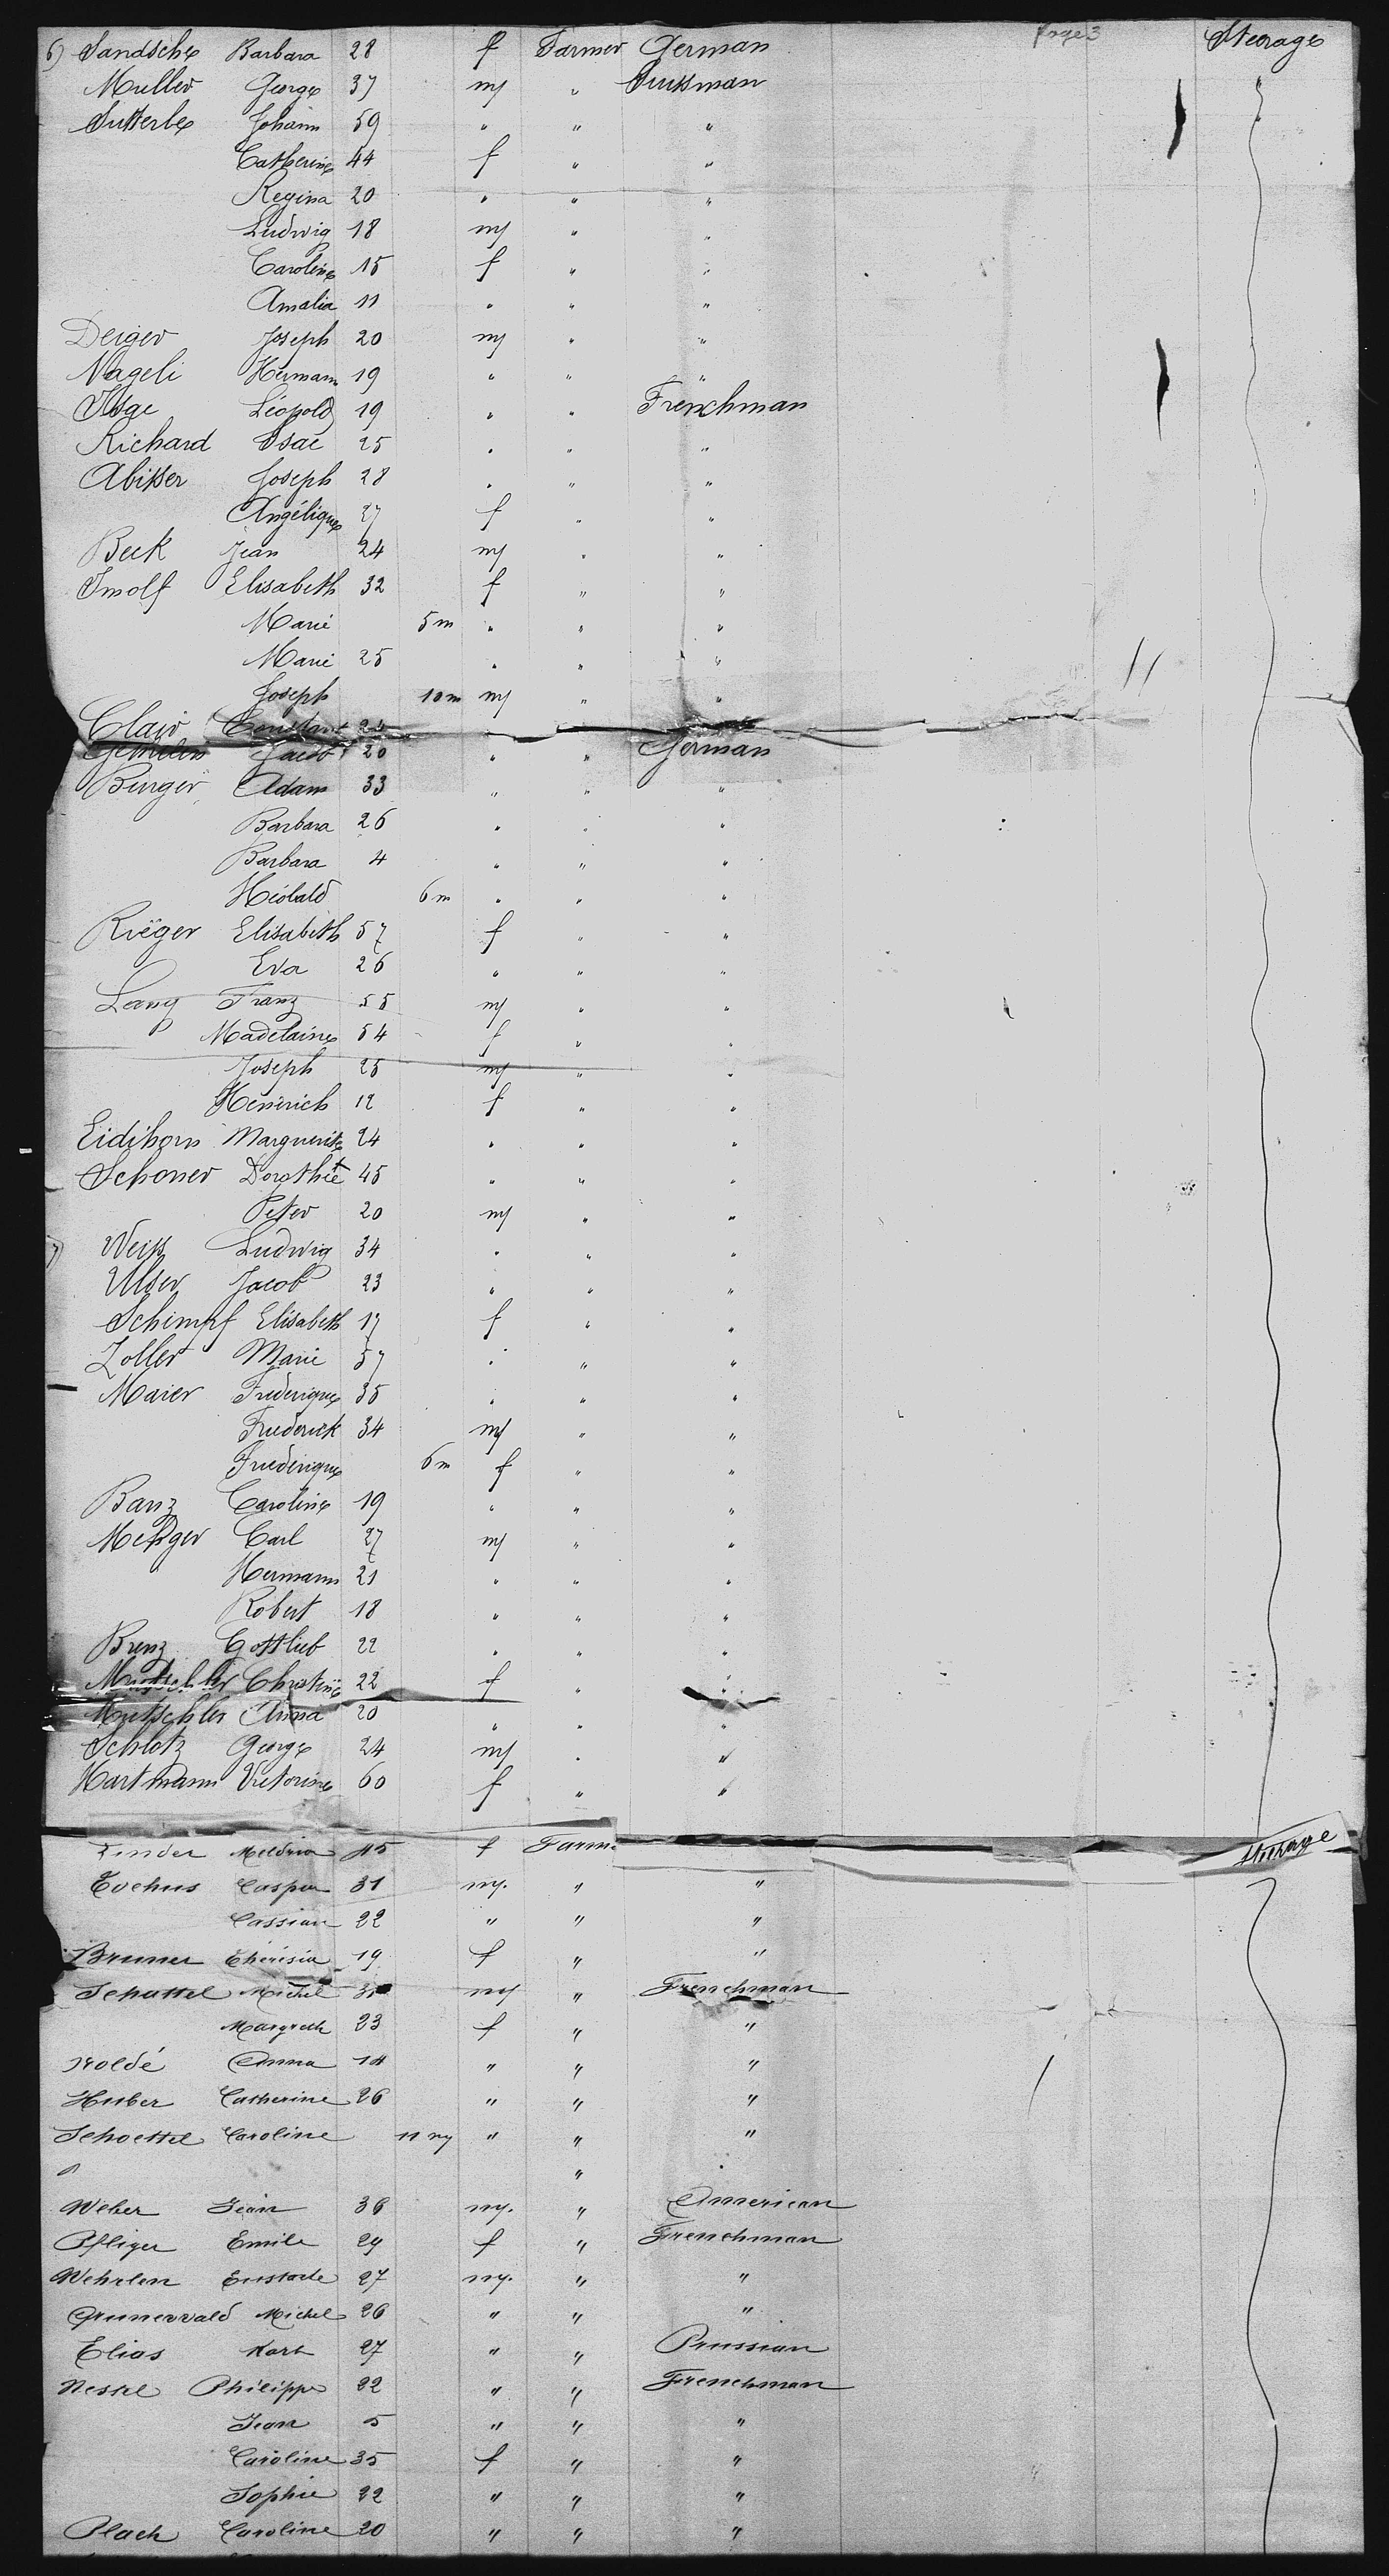 Page 3
6) Sandsche Barbara 28 f Farmer German Steerage
Muller George 37 m " Suissman
Sutterle Johann 59 " " "
Catherine 44 f " "
Regina 20 " " "
Ludwig 18 m " "
Caroline 15 f " "
Amalia 11 " " "
Deiger Joseph 20 m " "
Nageli Hermann 19 " " "
Léopold 19 " " Frenchman
Richard Isac 25 " " "
Abisser Joseph 28 " " "
Angélique 27 f " "
Beck Jean 24 m " "
Imolf Elisabeth 32 f " "
Marie 5 m " " "
Marie 25 " " "
Joseph 10 m m " "
Clair Constant 24
Jacob 20 " " German
Binger Adam 33 " " "
Barbara 26 " " "
Barbara 4 " " "
6 m " " "
Rieger Elisabeth 57 f " "
Eva 26 " " "
Lang Franz 55 m " "
Madelaine 54 f " "
Joseph 25 m " "
Heinrich 12 f " "
Eidihorn Marguerite 24 " " "
Schoner Dorothée 45 " " "
Peter 20 m " "
7) Weiss Ludwig 34 " " "
Ulser Jacob 23 " " "
Schimpf Elisabeth 17 f " "
Zoller Marie 57 " " "
Maier Frederique 35 " " "
Frederick 34 m " "
Frederique 6 m f " "
Banz Caroline 19 " " "
Metzger Carl 27 m " "
Hermann 21 " " "
Robert 18 " " "
Brenz Gottlieb 22 " " "
Mutschler Christine 22 f " "
Mutschler Anna 20 " " "
Schlotz George 24 m " "
Hartmann Victorine 60 f " "
Linder 45 f Farm. Steerage
Evehus Caspar 31 m. " "
Cassian 22 " " "
Bruner Theresia 19 f " "
Schattel Michel m " Frenchman
Margreth 23 f " "
Noldé Anna 14 " " "
Huber Catherine 26 " " "
Schoettel Caroline 11 m " " "
"
Weber Jean 36 m. " American
Pfliger Emile 29 f " Frenchman
Wehrlen Eustache 27 m. " "
Grunervald Michel 26 " " "
Elias Karl 27 " " Prussian
Nessel Philippe 32 " " Frenchman
Jean 5 " " "
Caroline 35 f " "
Sophie 22 " " "
Plach Caroline 20 " " "